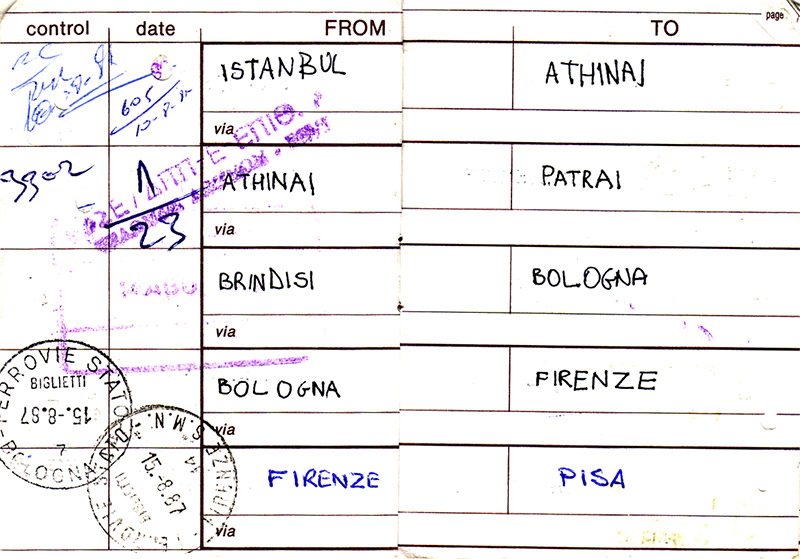 page
control date FROM TO
ISTANBUL ATHINAI
605
10-8-87
via
3302 1/23 ATHINAI PATRAI
via
BRINDISI BOLOGNA
via
BOLOGNA FIRENZE
FERROVIE STATO
BIGLIETTI
15.-8.87
7
BOLOGNA
via
FIRENZE S.M.N.
15.-8.87
BIGLIETTI
FIRENZE PISA
via